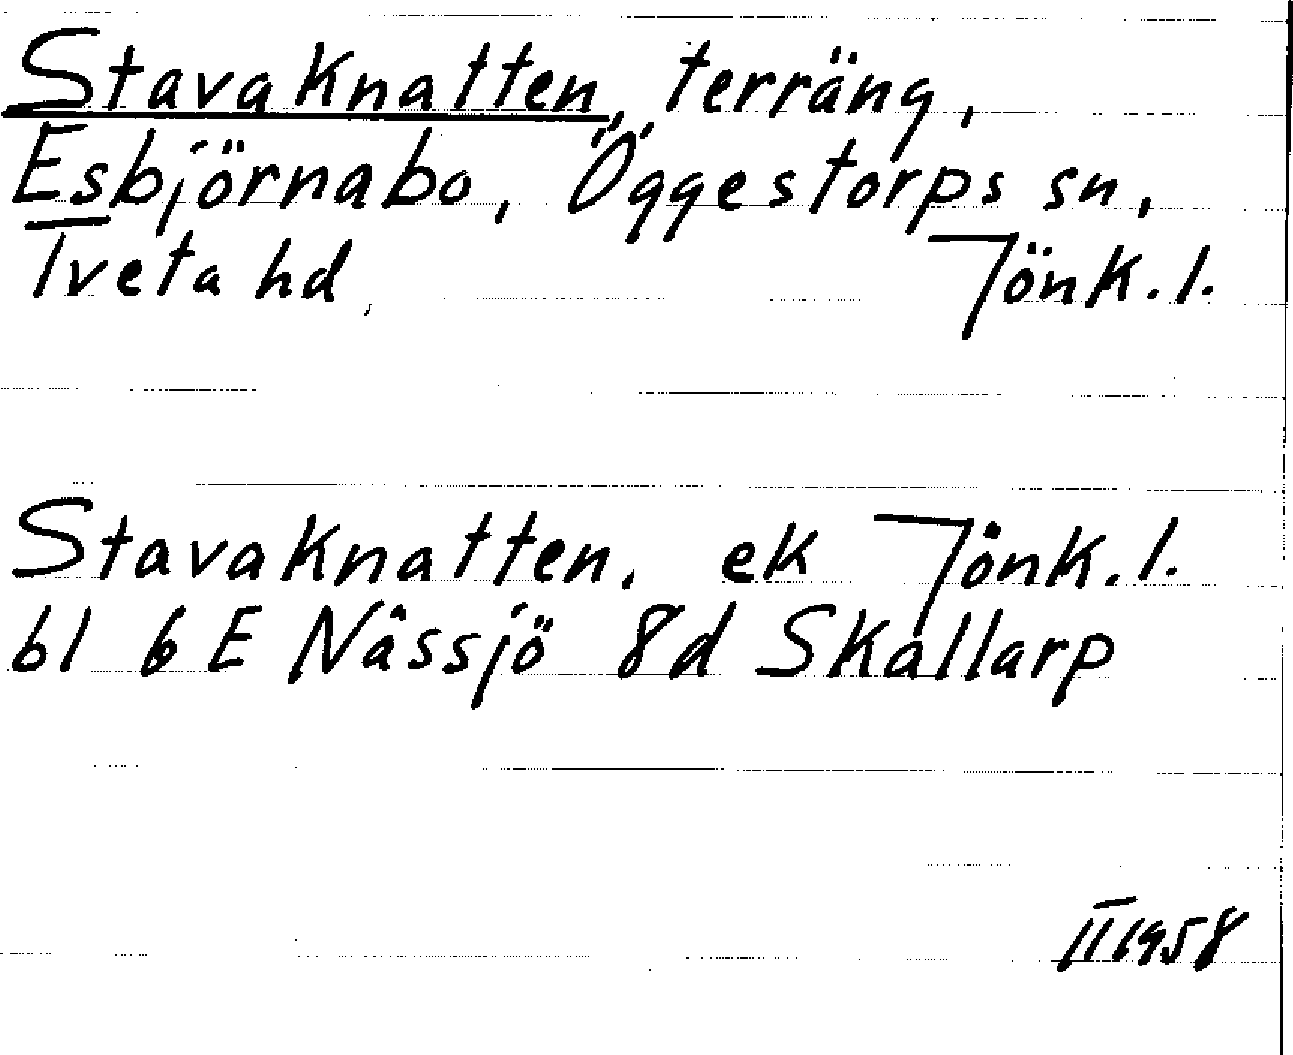 Stavaknatten, terräng,
Esbjörnabo, Öggestorps sn,
Tveta hd, Jönk. l.
Stavaknatten, ek Jönk. l.
bl 6 E Nässjö 8d Skallarp
II 1958